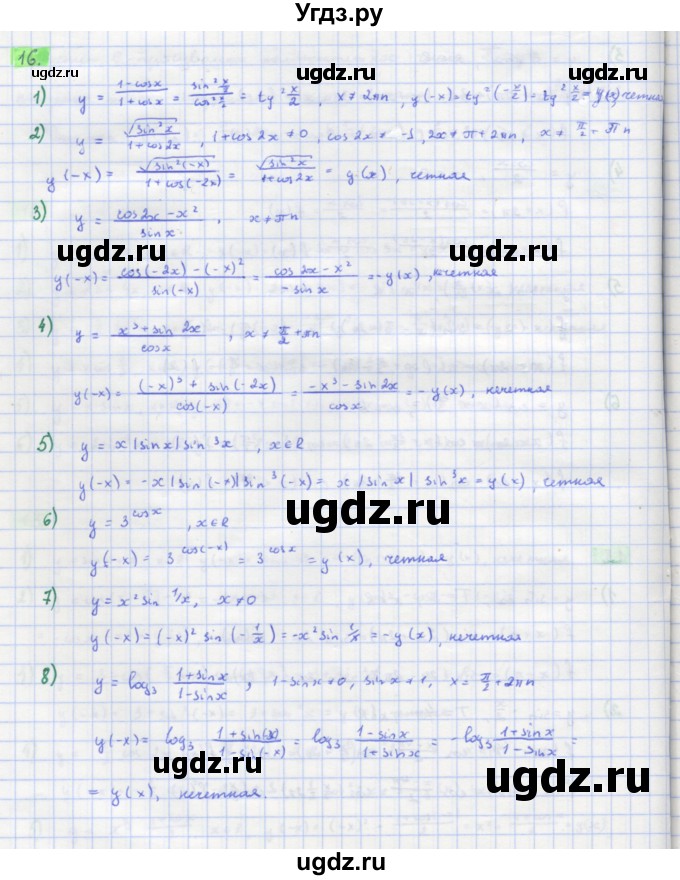 Угдз.ру
16.
1) y = (1-cosx)/(1+cosx) = (sin² x/2)/(cos² x/2) = tg² x/2 , x≠2πn , y(-x)=tg²(-x/2)=tg² x/2=y(x) четная
2) y = √(sin²x)/(1+cos2x) , 1+cos2x≠0, cos2x≠-1, 2x≠π+2πn, x≠π/2+πn
y(-x) = √(sin²(-x))/(1+cos(-2x)) = √(sin²x)/(1+cos2x) = y(x) , четная
ugdz.ru
ugdz.ru
3) y = (cos2x-x²)/sinx , x≠πn
ugdz.ru
ugdz.ru
y(-x)= (cos(-2x)-(-x)²)/sin(-x) = (cos2x-x²)/(-sinx) =-y(x) , нечетная
4) y = (x³+sin2x)/cosx , x≠π/2+πn
ugdz.ru
y(-x)= ((-x)³+sin(-2x))/cos(-x) = (-x³-sin2x)/cosx =-y(x), нечетная
ugdz.ru
5) y = x|sinx|sin³x , x∈R
y(-x)=-x|sin(-x)|sin³(-x)= x|sinx|sin³x=y(x), четная
ugdz.ru
6) y=3^cosx , x∈R
y(-x)=3^cos(-x)=3^cosx=y(x), четная
ugdz.ru
7) y=x²sin 1/x, x≠0
ugdz.ru
y(-x)=(-x)² sin(-1/x)=-x²sin 1/x=-y(x), нечетная
8) y=log₃ (1+sinx)/(1-sinx) , 1-sinx≠0, sinx≠1, x=π/2+2πn
ugdz.ru
y(-x)= log₃ (1+sin(-x))/(1-sin(-x)) = log₃ (1-sinx)/(1+sinx) = -log₃ (1+sinx)/(1-sinx) =
ugdz.ru
ugdz.ru
= y(x), нечетная.
ugdz.ru